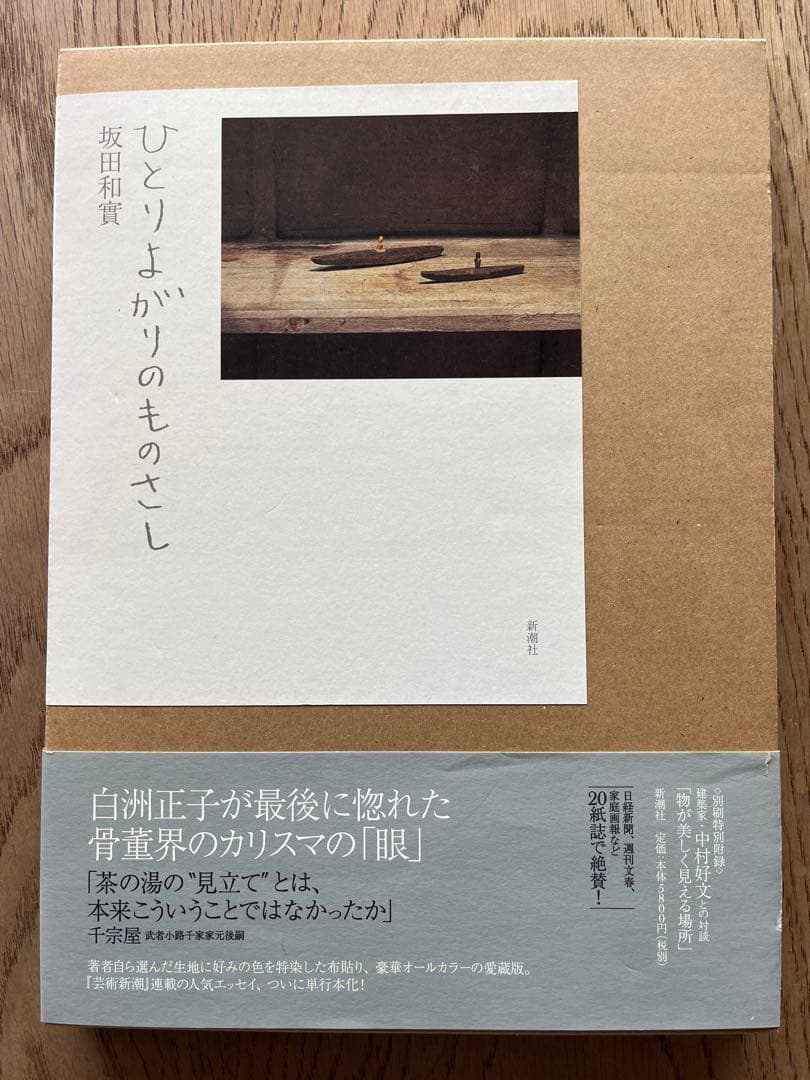 ひとりよがりのものさし
坂田和實
新潮社
白洲正子が最後に惚れた
骨董界のカリスマの「眼」
「茶の湯の〝見立て〟とは、
本来こういうことではなかったか」
千宗屋 武者小路千家家元後嗣
著者自ら選んだ生地に好みの色を特染した布貼り、豪華オールカラーの愛蔵版。
『芸術新潮』連載の人気エッセイ、ついに単行本化!
日経新聞、週刊文春、
家庭画報など
20紙誌で絶賛!
◇別刷特別附録◇
建築家・中村好文との対談
「物が美しく見える場所」
新潮社 定価:本体5800円(税別)